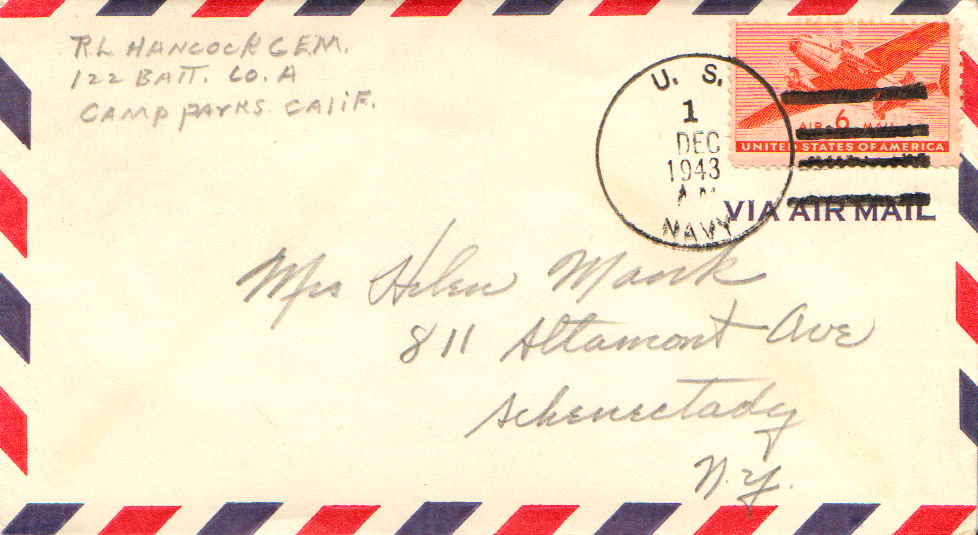 RL HANCOCK CEM.
122 BATT. CO. A
CAMP PARKS. CALIF.
U. S.
1
DEC
1943
A.M.
NAVY
AIR 6 MAIL
UNITED STATES OF AMERICA
VIA AIR MAIL
Mrs Helen
811 Altamont Ave
Schenectady
N.Y.